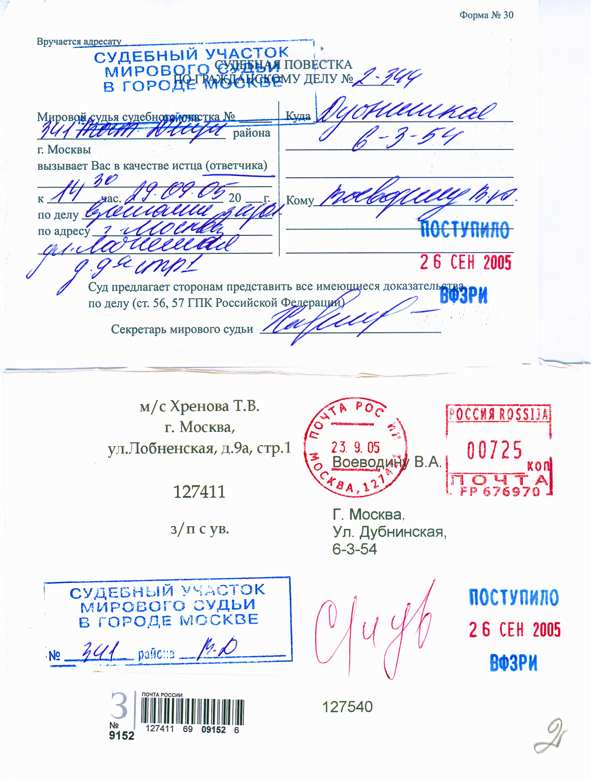 Форма № 30
Вручается адресату
СУДЕБНЫЙ УЧАСТОК
МИРОВОГО СУДЬИ
В ГОРОДЕ МОСКВЕ
СУДЕБНАЯ ПОВЕСТКА
ПО ГРАЖДАНСКОМУ ДЕЛУ № 2-344
Мировой судья судебного участка №
341 района
г. Москвы
вызывает Вас в качестве истца (ответчика)
к 14 30 час. 29.09.05 20 г.
по делу
по адресу г. Москва
ул. Лобненская
д. 9а стр1
Куда Дубнинская
6-3-54
Кому Воеводину В.А.
ПОСТУПИЛО
26 СЕН 2005
ВФЗРИ
Суд предлагает сторонам представить все имеющиеся доказательства
по делу (ст. 56, 57 ГПК Российской Федерации)
Секретарь мирового судьи
м/с Хренова Т.В.
г. Москва,
ул.Лобненская, д.9а, стр.1
127411
з/п с ув.
ПОЧТА РОССИИ
23. 9. 05
МОСКВА, 127411
РОССИЯ ROSSIJA
00725 коп
ПОЧТА
FP 676970
Воеводину В.А.
Г. Москва.
Ул. Дубнинская,
6-3-54
СУДЕБНЫЙ УЧАСТОК
МИРОВОГО СУДЬИ
В ГОРОДЕ МОСКВЕ
№ 341 района В-Д
ПОСТУПИЛО
26 СЕН 2005
ВФЗРИ
З
№
9152
ПОЧТА РОССИИ
127411 69 09152 6
127540
2